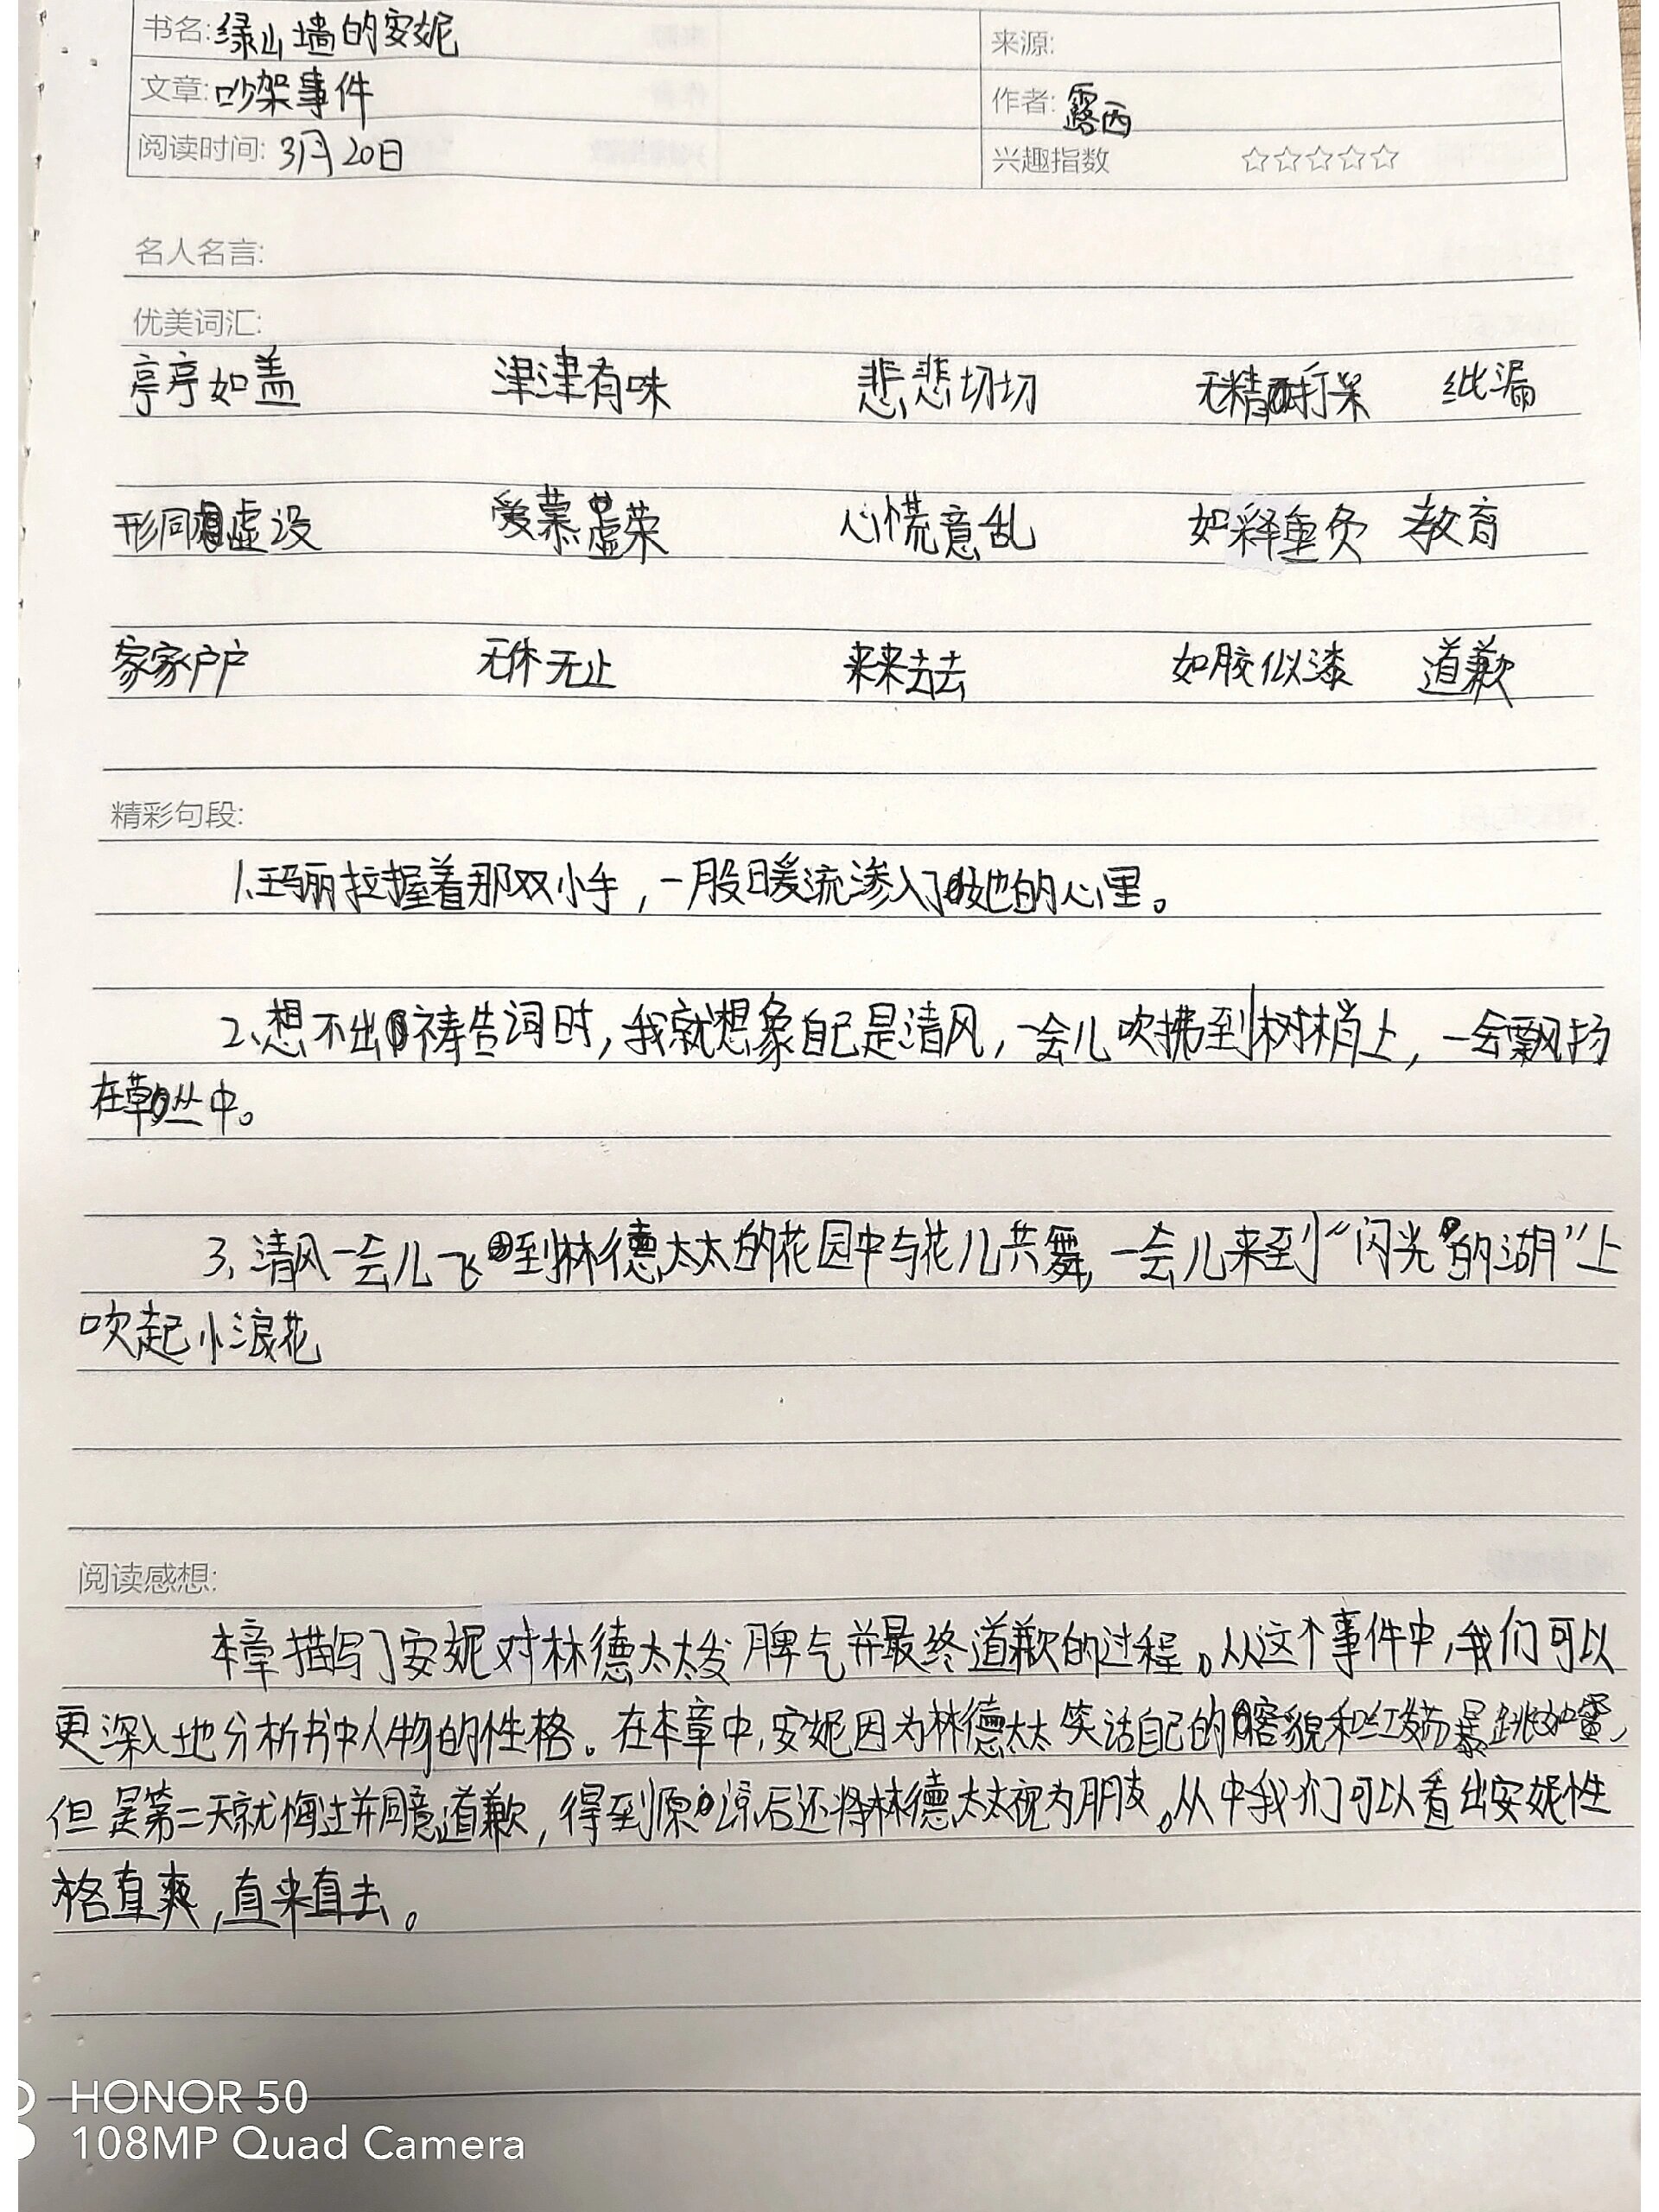 书名:绿山墙的安妮 来源:
文章:吵架事件 作者:露西
阅读时间:3月20日 兴趣指数 ☆☆☆☆☆
名人名言:
优美词汇:
亭亭如盖 津津有味 悲悲切切 无精打采 纰漏
形同虚设 爱慕虚荣 心慌意乱 如释重负 教育
家家户户 无休无止 来来去去 如胶似漆 道歉
精彩句段:
1、玛丽拉握着那双小手,一股暖流渗入了她的心里。
2、想不出祷告词时,我就想象自己是清风,一会儿吹拂到树梢上,一会飘扬
在草丛中。
3、清风一会儿飞到林德太太的花园中与花儿共舞,一会儿来到“闪光的湖”上
吹起小浪花
阅读感想:
本章描写了安妮对林德太太发脾气并最终道歉的过程。从这个事件中,我们可以
更深入地分析书中人物的性格。在本章中,安妮因为林德太太笑话自己的容貌和红发而暴跳如雷,
但是第二天就悔过并同意道歉,得到原谅后还将林德太太视为朋友。从中我们可以看出安妮性
格直爽,直来直去。
HONOR 50
108MP Quad Camera